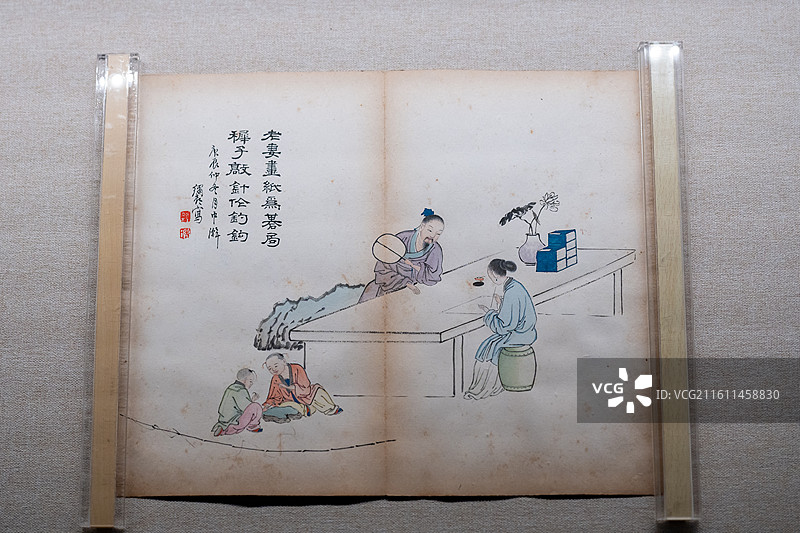 老妻畫紙爲碁局
穉子敲針作釣鉤
庚辰仲冬月中澣
寫
VCG
ID: VCG211611458830